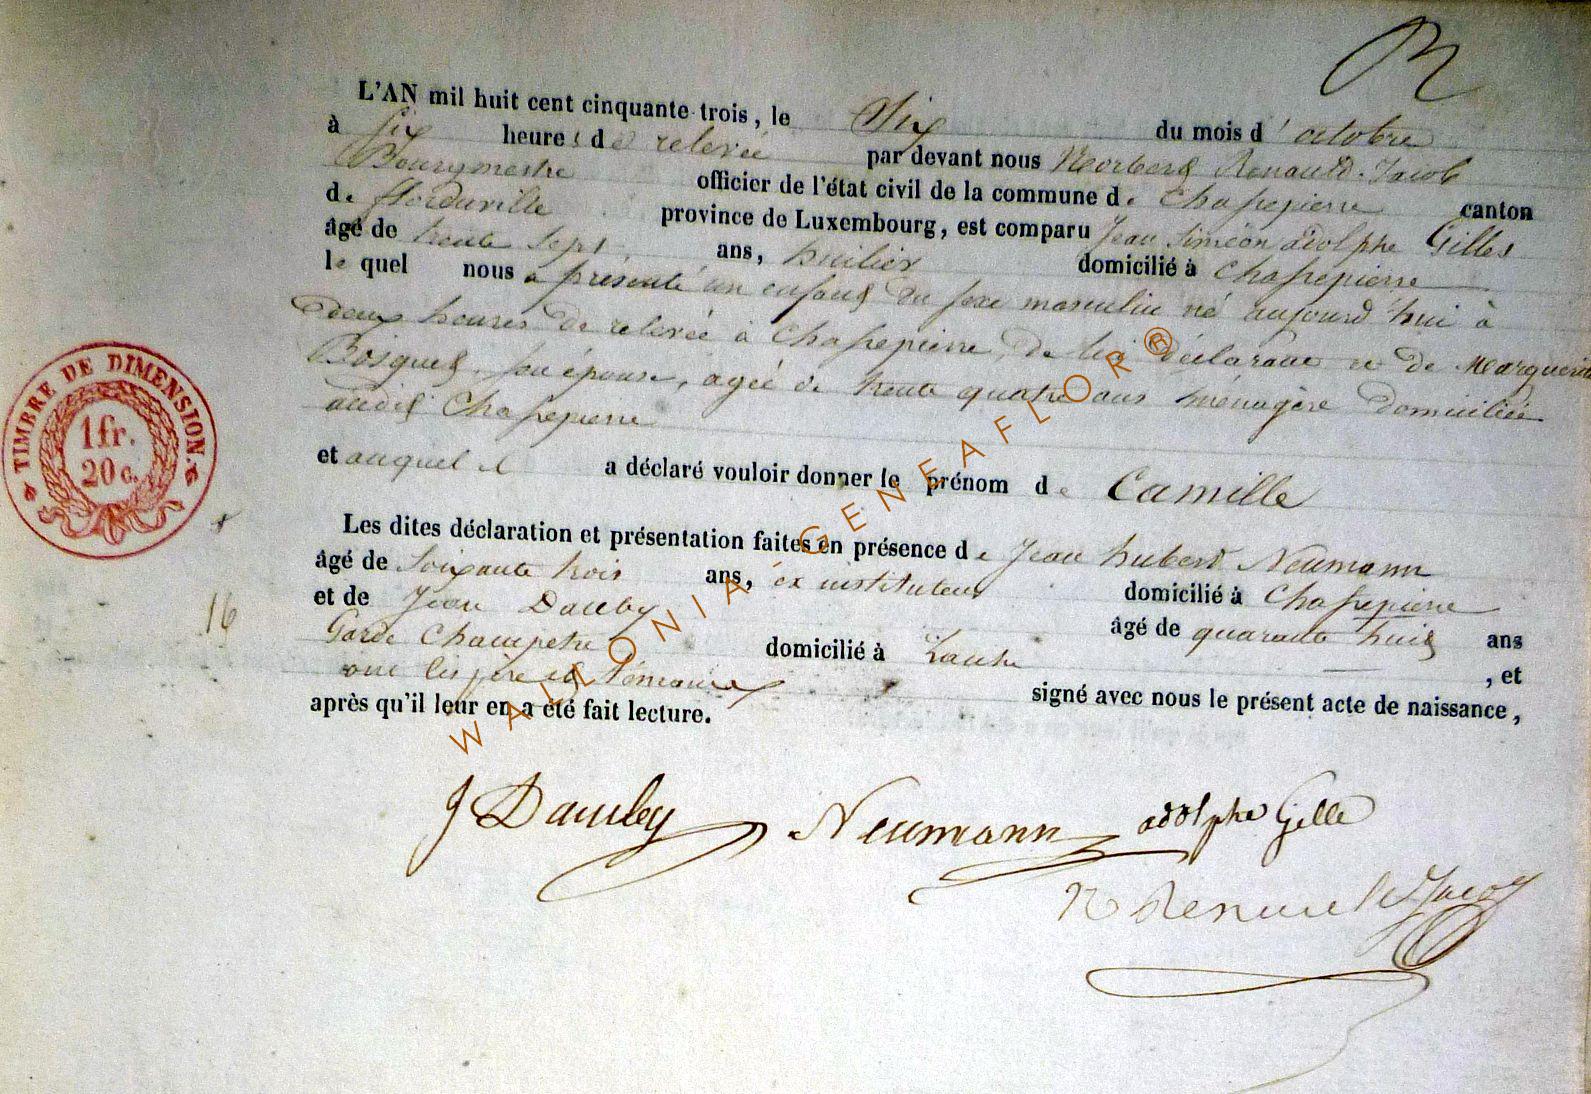 L'AN mil huit cent cinquante trois, le Six du mois d'octobre
à six heures de relevée par devant nous Norbert Renauld-Jacob
Bourgmestre officier de l'état civil de la commune de Chassepierre canton
de florenville province de Luxembourg, est comparu Jean Siméon adolphe Gilles
âgé de trente sept ans, huilier domicilié à Chassepierre
le quel nous a présenté un enfant du sexe masculin né aujourd'hui à
deux heures de relevée à Chassepierre, de lui déclarant et de Marguerite
Bosquet, son épouse, agée de trente quatre ans ménagère domiciliée
audit Chassepierre
et auquel il a déclaré vouloir donner le prénom de Camille
Les dites déclaration et présentation faites en présence de Jean hubert Neumann
âgé de soixante trois ans, ex instituteur domicilié à Chassepierre
et de Jean Dauby âgé de quarante huit ans
Garde Champetre domicilié à Laiche, et
ont les père et témoins signé avec nous le présent acte de naissance,
après qu'il leur en a été fait lecture.
TIMBRE DE DIMENSION.
1 fr.
20 c.
16
J Dauby Neumann adolphe Gille
N Renauld Jacob
WALLONIA GENEAFLOR®